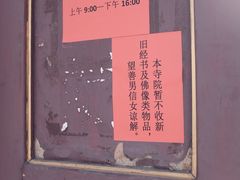 上午 9:00一下午 16:00
本寺院暂不收新
旧经书及佛像类物品，
望善男信女谅解。